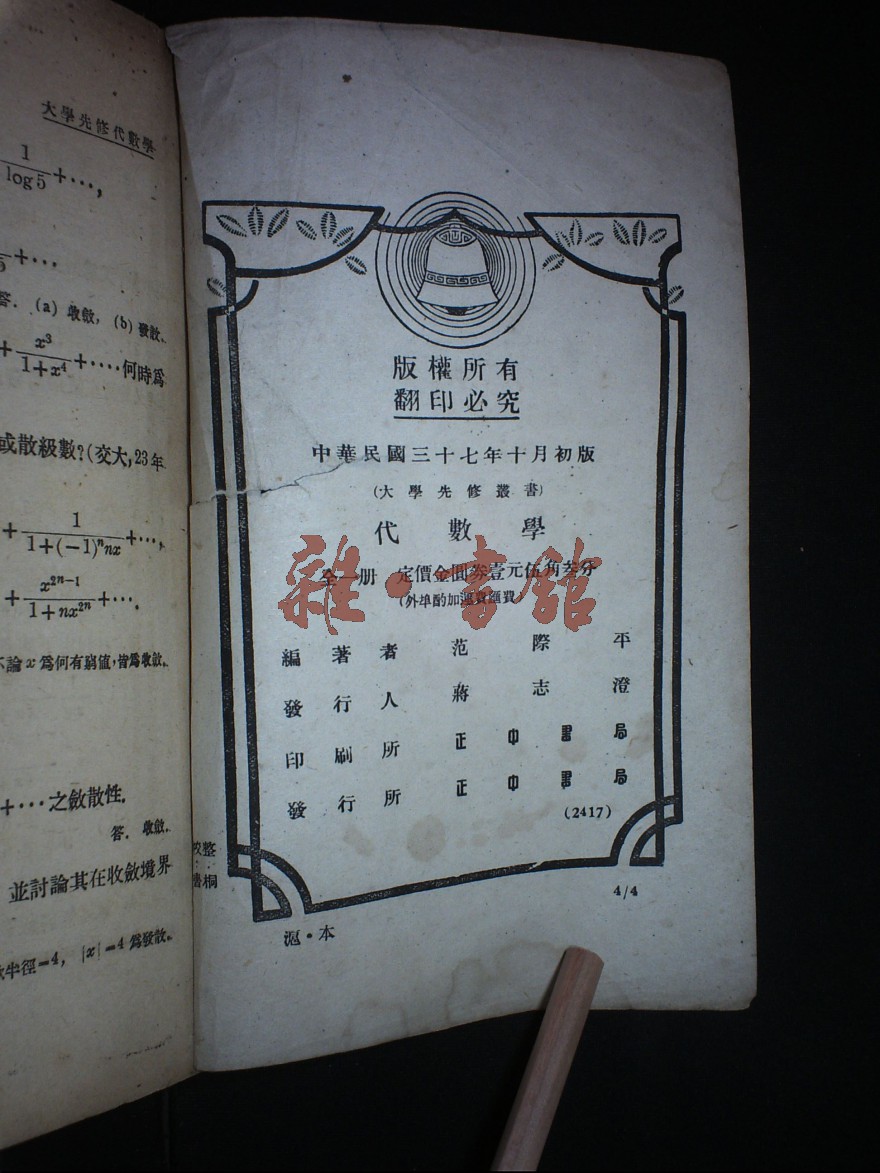 大學先修代數學
1/log5+⋯,
+⋯
答. (a) 收斂, (b) 發散.
+x³/1+x⁴+⋯·何時爲
或散級數?(交大, 23年
+1/1+(−1)ⁿnx+⋯,
+x²ⁿ⁻¹/1+nx²ⁿ+⋯.
不論x爲何有窮值,皆爲收斂.
+⋯之斂散性.
答. 收斂.
並討論其在收斂境界
半徑=4, |x|=4爲發散.
版權所有
翻印必究
中華民國三十七年十月初版
(大學先修叢書)
代數學
全一册 定價金圓券壹元伍角叁分
(外埠酌加運費匯費)
編著者 范際平
發行人 蔣志澄
印刷所 正中書局
發行所 正中書局
(2417)
校整
桐
4/4
滬·本
雜·書館